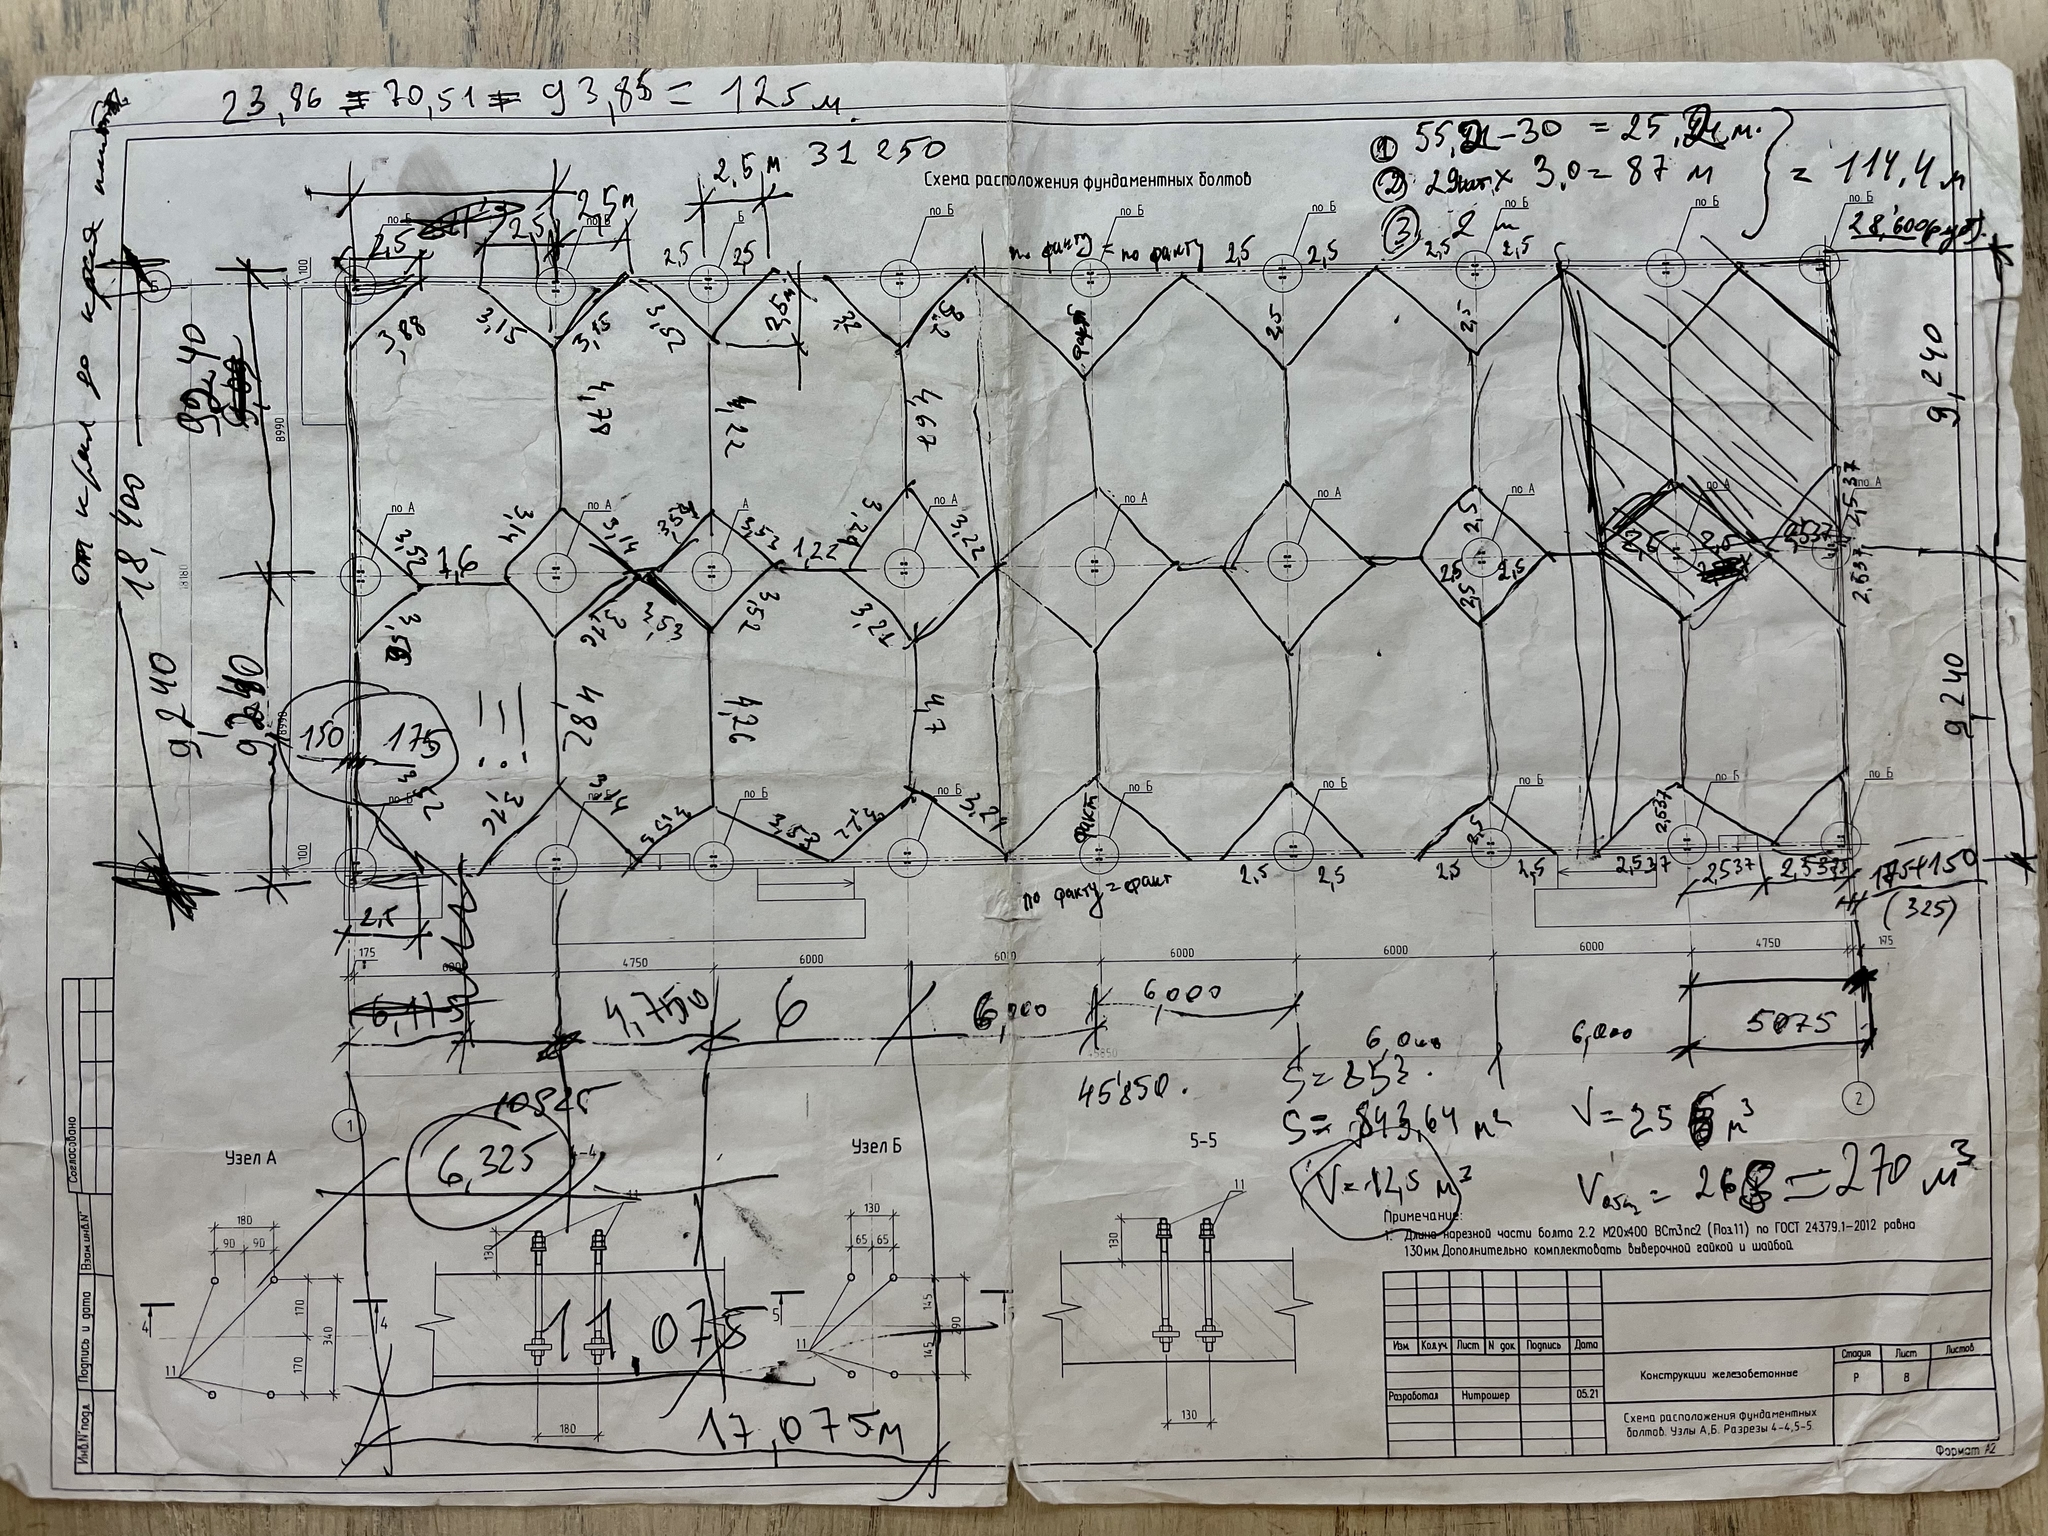 23,86 = 70,51 = 93,85 = 125 м.
31 250
Схема расположения фундаментных болтов
① 55,2 - 30 = 25,2 м.
② 29шт. х 3,0 = 87 м
= 114,4 м
28,600(руб).
2,5 м
2,5м
2,5
2,5
по Б
по Б
Б
по Б
по Б
по Б
по Б
по Б
по Б
2,5
2,5
по факту = по факту
2,5
2,5
2,5
2,5
100
3,88
3,15
3,15
3,52
2,5м
3,2
факт
2,5
2,5
от края до края плиты
18,400
9,240
8990
4,78
4,22
4,67
9,240
по А
по А
А
по А
по А
по А
по А
по А
по А
3,52
1,6
3,14
3,14
3,54
3,52
1,22
3,21
3,22
2,5
2,5
2,5
2,537
2,537
2,537
18180
3,16
3,53
3,52
3,21
2,5
2,5
2,5
9,240
8990
150
175
!!!
4,82
4,26
4,7
9,240
3,52
3,16
3,14
3,53
3,53
3,21
3,21
факт
2,5
2,537
по Б
по Б
по Б
по Б
по Б
по Б
по Б
по Б
по Б
100
2,5
по факту = факт
2,5
2,5
2,5
2,5
2,537
2,537
2,5375
175+150
(325)
175
4750
6000
6000
6000
6000
6000
4750
175
6,175
4,750
6
6,000
6,000
6,000
6,000
5075
45850
45'850.
S=853
S= 843,64 м²
V=12,5 м³
V=256 м³
Vобщ = 268 = 270 м³
10825
6,325
1
2
Узел А
4-4
Узел Б
5-5
11
11
180
90
90
170
170
340
11
4
4
130
180
130
65
65
145
145
290
11
5
5
130
130
11,075
17,075м
Примечание:
1. Длина нарезной части болта 2.2 М20х400 ВСт3пс2 (Поз.11) по ГОСТ 24379.1-2012 равна
130мм.Дополнительно комплектовать выверочной гайкой и шайбой.
Изм
Кол.уч
Лист
N док
Подпись
Дата
Разработал
Нитрошер
05.21
Конструкции железобетонные
Стадия
Лист
Листов
Р
8
Схема расположения фундаментных
болтов. Узлы А,Б. Разрезы 4-4,5-5.
Формат А2
Согласовано
Взам.инв.N°
Подпись и дата
Инв.N°подл